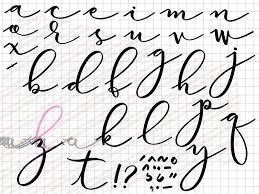 a c e i m n
o r s u v w
x
b d f g h j
k l p q
z t !? y